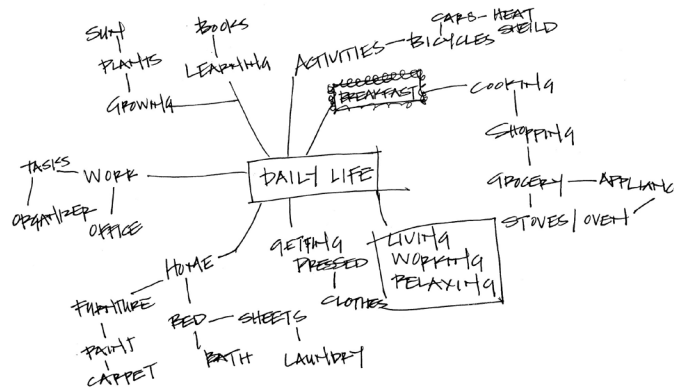 SUN
PLANTS
GROWING
BOOKS
LEARNING
ACTIVITIES
BICYCLES
CARS - HEAT
SHEILD
BREAKFAST
COOKING
SHOPPING
GROCERY
APPLIANC
STOVES / OVEN
DAILY LIFE
TASKS
WORK
ORGANIZER
OFFICE
HOME
FURNTURE
PAINT
CARPET
BED
SHEETS
BATH
LAUNDRY
GETTING
DRESSED
CLOTHES
LIVING
WORKING
RELAXING